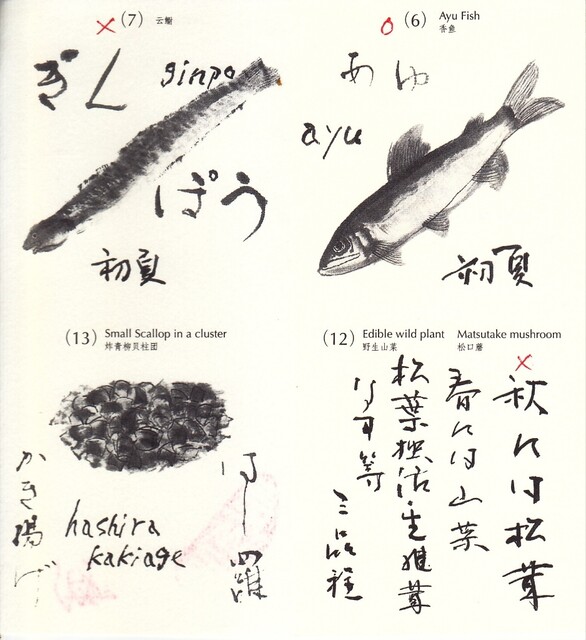 (7) 云鳚
ぎん ginpo
ぽう
初夏
(6) Ayu Fish
香鱼
あゆ
ayu
初夏
(13) Small Scallop in a cluster
炸青柳贝柱团
はし羅
hashira
kakiage
かき揚げ
(12) Edible wild plant Matsutake mushroom
野生山菜 松口蘑
秋には松茸
春には山菜
松葉独活・生椎茸
等
三品程